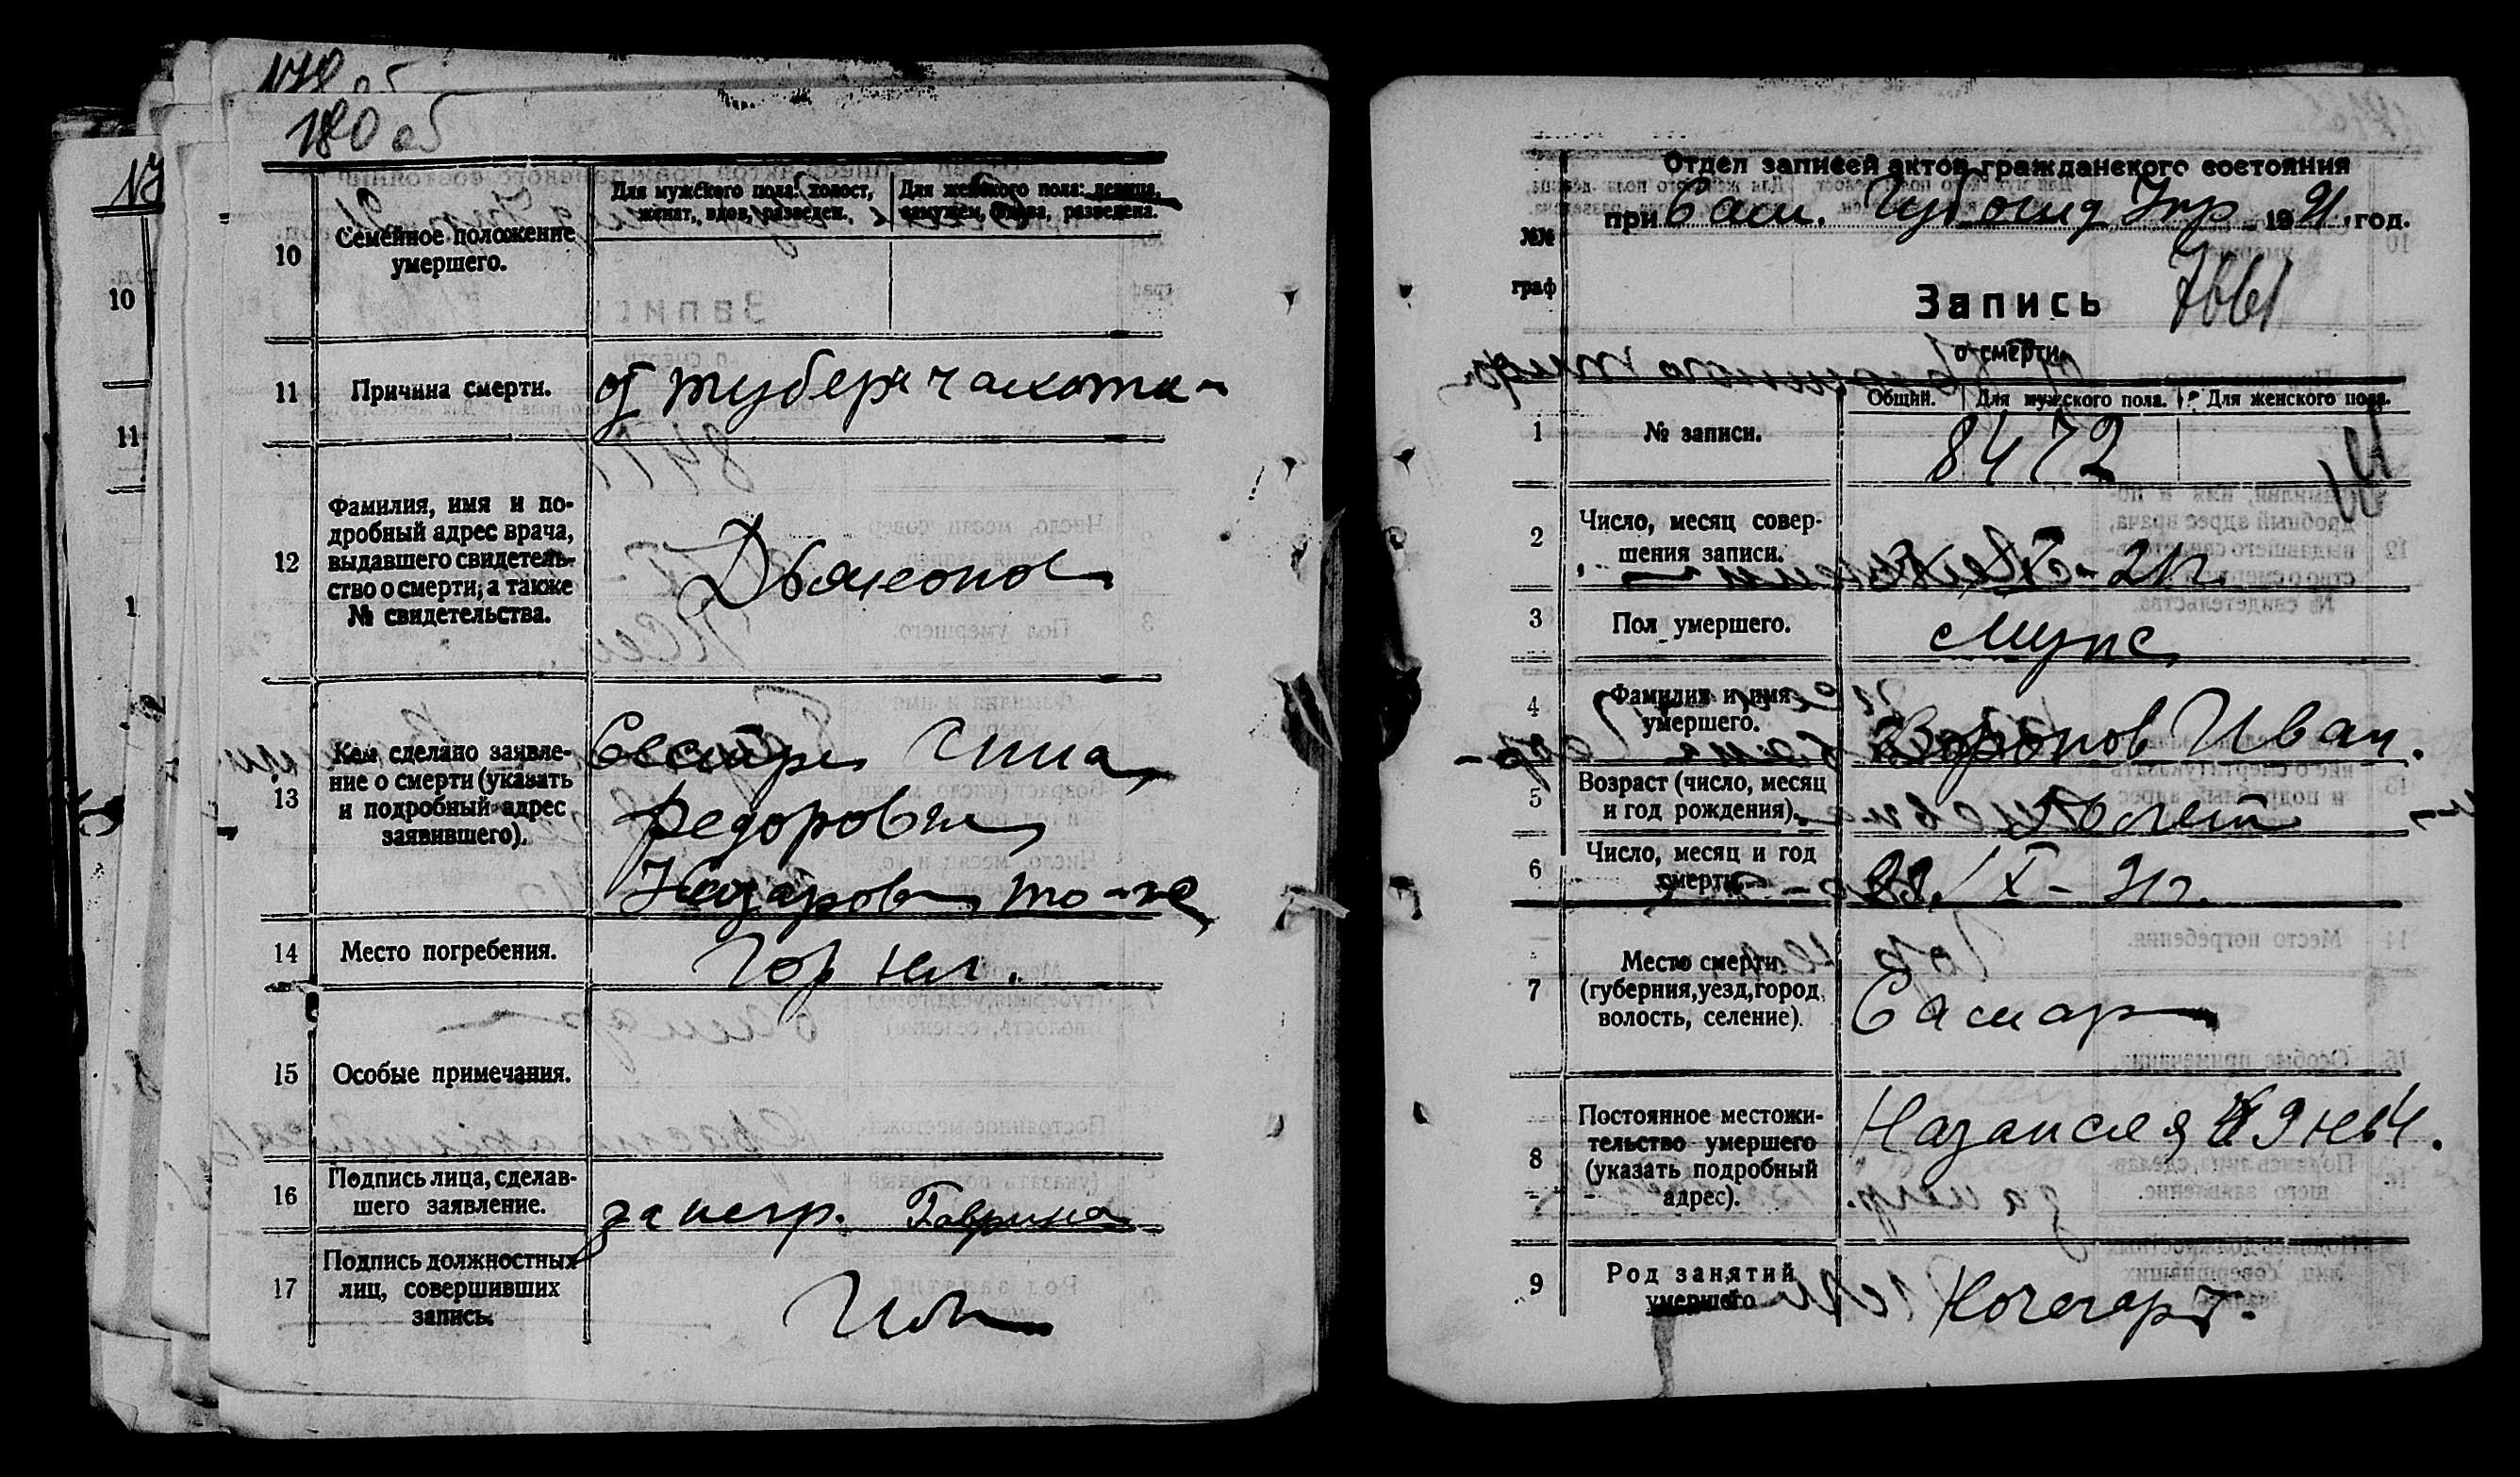 178 об
180 об
10
11
10
Семейное положение
умершего.
Для мужского пола: холост,
женат, вдов, разведен.
Для женского пола: девица,
замужем, вдова, разведена.
11
Причина смерти.
от туберк чахотки
12
Фамилия, имя и по-
дробный адрес врача,
выдавшего свидетель-
ство о смерти, а также
№ свидетельства.
Дьяконов
13
Кем сделано заявле-
ние о смерти (указать
и подробный адрес
заявившего).
Федоровна
то-же
14
Место погребения.
Гор кл.
15
Особые примечания.
16
Подпись лица, сделав-
шего заявление.
за негр. Гаврина
17
Подпись должностных
лиц, совершивших
запись.
Отдел записей актов гражданского состояния
при Сам. Губ отд Упр 1921 год.
№№
граф
Запись
о смерти
Общий.
Для мужского пола.
Для женского пола.
1
№ записи.
8472
2
Число, месяц совер-
шения записи.
21 г.
3
Пол умершего.
Мужс
4
Фамилия и имя
умершего.
Воронов Иван.
5
Возраст (число, месяц
и год рождения).
лет
6
Число, месяц и год
смерти.
28/X - 21 г.
7
Место смерти
(губерния, уезд, город,
волость, селение).
Самар
8
Постоянное местожи-
тельство умершего
(указать подробный
адрес).
Казанская
9
Род занятий
умершего
Кочегар